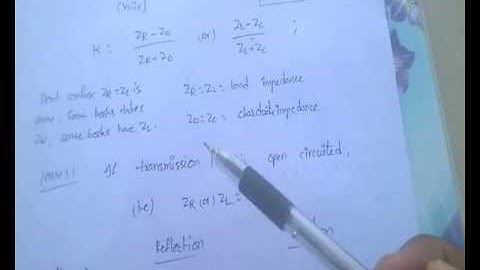 K: (ZR-Z0)/(ZR+Z0) (or) (ZL-Zc)/(ZL+Zc) ;
Dont confuse ZR=ZL is
same. Some books takes
ZR, some books have ZL.
ZR=ZL= load impedance
Z0=Zc= charctristic impedance
Case:1 If transmission open circuited,
(ie) ZR (or) ZL =
Reflection